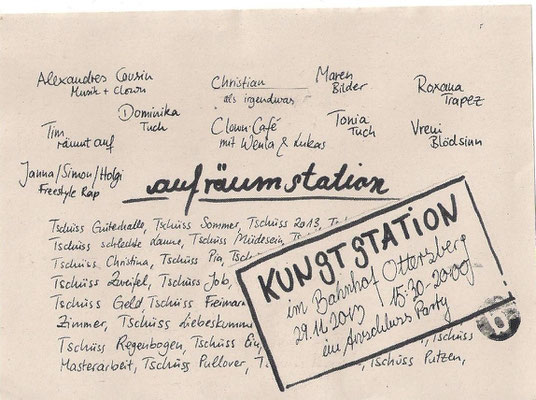 Alexandres Cousin
Musik + Clown
Christian
als irgendwas
Maren
Bilder
Roxana
Trapez
Dominika
Tuch
Tim
räumt auf
Clown-Café
mit Wenla & Lukas
Tonia
Tuch
Vreni
Blödsinn
Janna/Simon/Holgi
Freestyle Rap
aufräumstation
Tschüss Güterhalle, Tschüss Sommer, Tschüss 2013,
Tschüss schlechte Laune, Tschüss Müdesein,
Tschüss Christina, Tschüss Pia,
Tschüss Zweifel, Tschüss Job,
Tschüss Geld Tschüss
Zimmer, Tschüss Liebeskummer
Tschüss Regenbogen, Tschüss
Masterarbeit, Tschüss Pullover, Tschüss Putzen,
KUNSTSTATION
im Bahnhof Ottersberg
29.11.2013 / 15:30-20:00
ein Anschluss Party
b